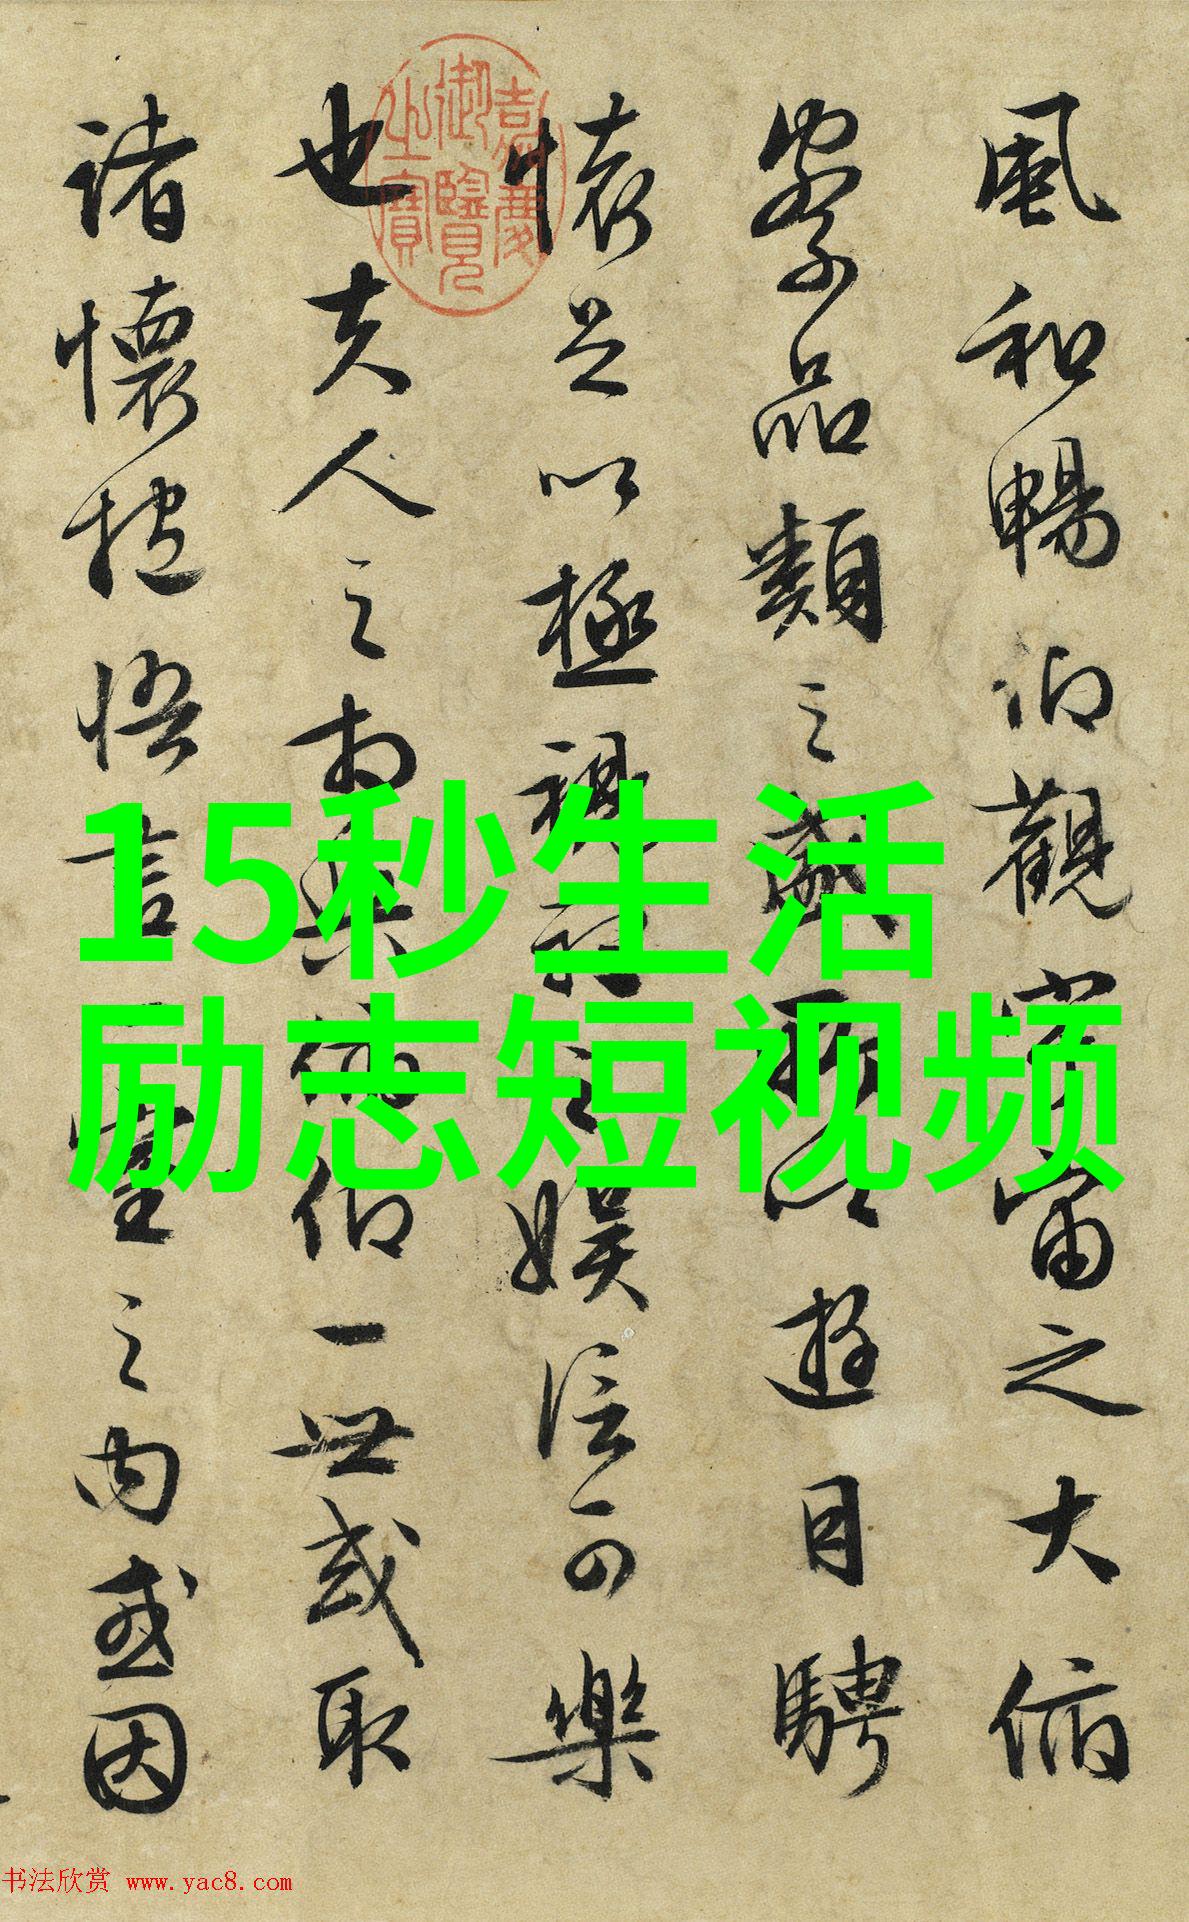 風和暢仰觀宇宙之大俯
察品類之盛所以遊目騁
懷足以極視聽之娛信可樂
也夫人之相與俯仰一世或取
諸懷抱悟言一室之內或因
嘉慶
御覽
之寶
15秒生活
励志短视频
书法欣赏 www.yac8.com